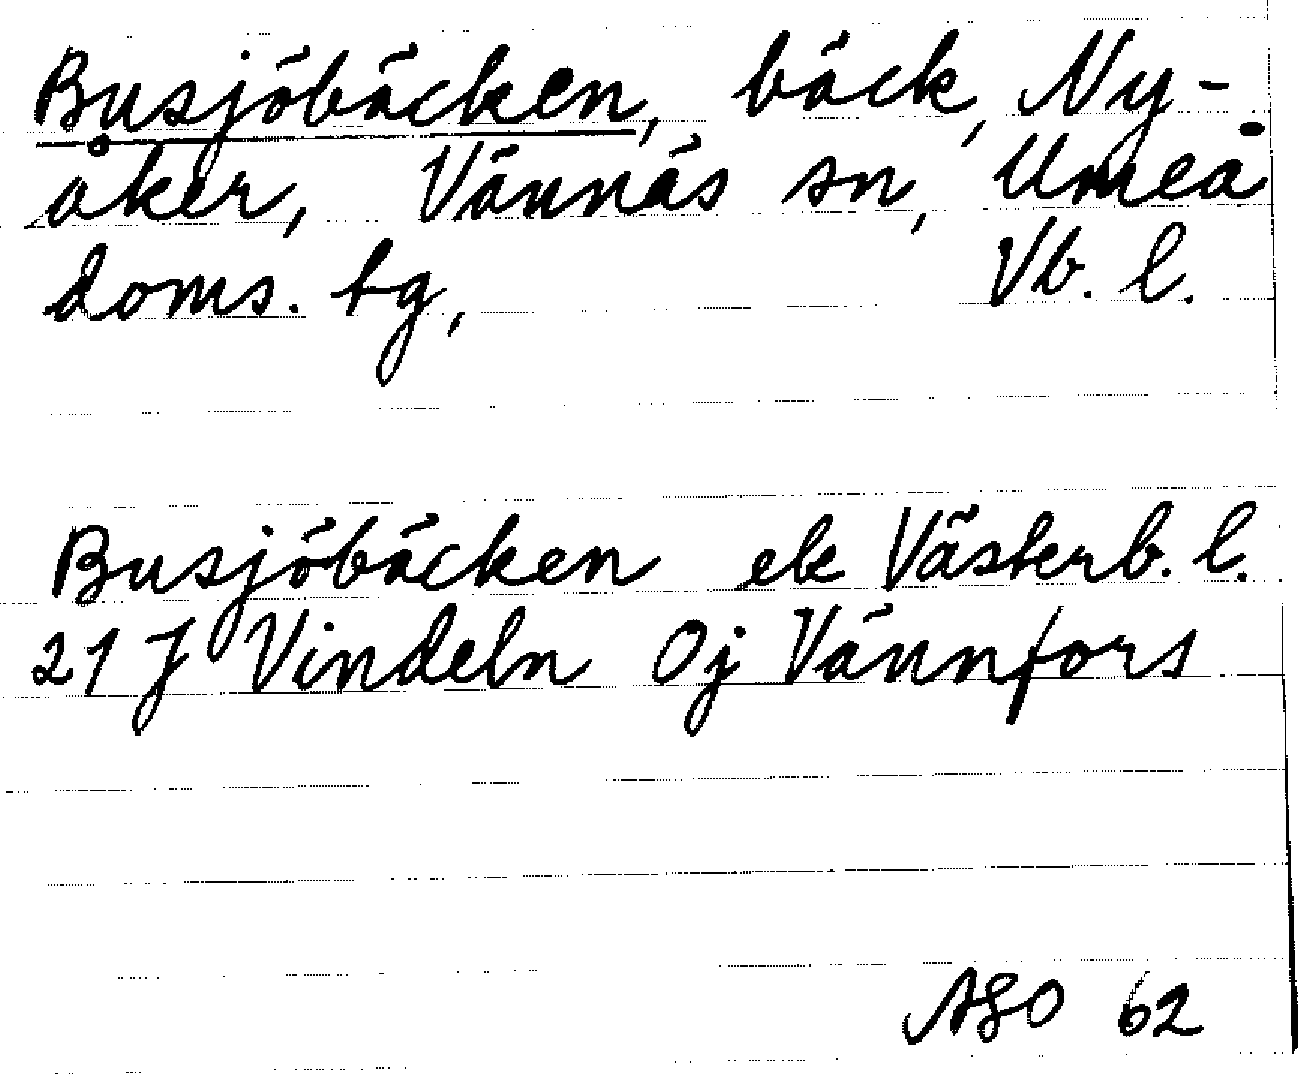 Busjöbäcken, bäck, Ny-
åker, Vännäs sn, Umeå
doms. tg, Vb. l.
Busjöbäcken ek Västerb. l.
21 J Vindeln Oj Vännfors
62